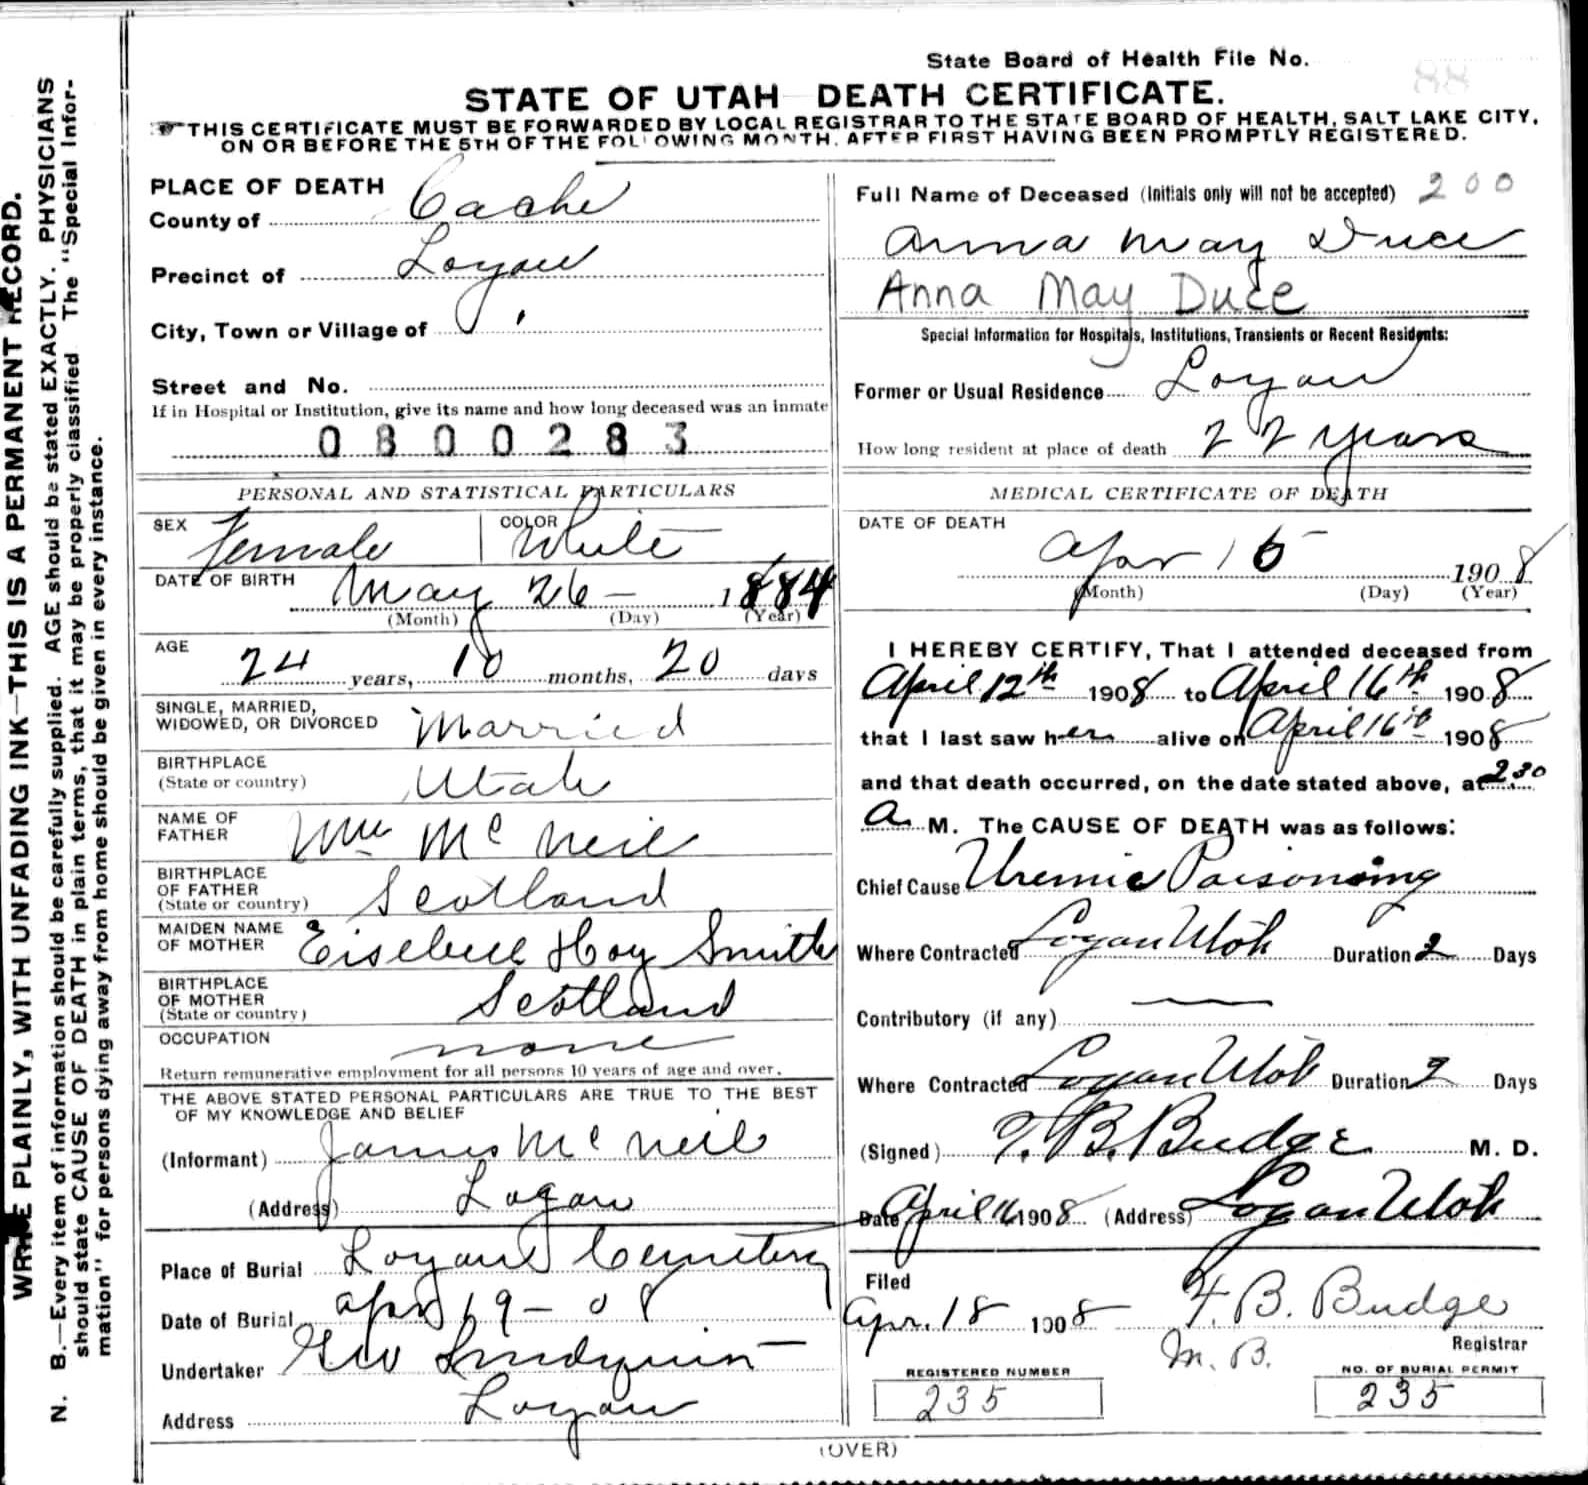 State Board of Health File No. 88
STATE OF UTAH DEATH CERTIFICATE.
THIS CERTIFICATE MUST BE FORWARDED BY LOCAL REGISTRAR TO THE STATE BOARD OF HEALTH, SALT LAKE CITY,
ON OR BEFORE THE 5TH OF THE FOLLOWING MONTH, AFTER FIRST HAVING BEEN PROMPTLY REGISTERED.
WRITE PLAINLY, WITH UNFADING INK—THIS IS A PERMANENT RECORD.
N. B.—Every item of information should be carefully supplied. AGE should be stated EXACTLY. PHYSICIANS
should state CAUSE OF DEATH in plain terms, that it may be properly classified. The "Special Infor-
mation" for persons dying away from home should be given in every instance.
PLACE OF DEATH
County of Cache
Precinct of Logan
City, Town or Village of "
Street and No.
If in Hospital or Institution, give its name and how long deceased was an inmate
0800283
PERSONAL AND STATISTICAL PARTICULARS
SEX Female COLOR White
DATE OF BIRTH May 26 — 1884
(Month) (Day) (Year)
AGE 24 years, 10 months, 20 days
SINGLE, MARRIED,
WIDOWED, OR DIVORCED Married
BIRTHPLACE
(State or country) Utah
NAME OF
FATHER Wm McNeil
BIRTHPLACE
OF FATHER
(State or country) Scotland
MAIDEN NAME
OF MOTHER Hoy Smith
BIRTHPLACE
OF MOTHER
(State or country) Scotland
OCCUPATION none
Return remunerative employment for all persons 10 years of age and over.
THE ABOVE STATED PERSONAL PARTICULARS ARE TRUE TO THE BEST
OF MY KNOWLEDGE AND BELIEF
(Informant) James McNeil
(Address) Logan
Place of Burial Logan Cemetery
Date of Burial Apr 19-08
Undertaker Geo
Address Logan
Full Name of Deceased (Initials only will not be accepted) 200
Anna May Duce
Anna May Duce
Special Information for Hospitals, Institutions, Transients or Recent Residents:
Former or Usual Residence Logan
How long resident at place of death 22 years
MEDICAL CERTIFICATE OF DEATH
DATE OF DEATH
Apr 16 1908
(Month) (Day) (Year)
I HEREBY CERTIFY, That I attended deceased from
April 12th 1908 to April 16th 1908
that I last saw her alive on April 16th 1908
and that death occurred, on the date stated above, at 2.30
A. M. The CAUSE OF DEATH was as follows:
Chief Cause Uremic Poisoning
Where Contracted Logan Utah Duration 2 Days
Contributory (if any) —
Where Contracted Logan Utah Duration 2 Days
(Signed) T. B. Budge M. D.
Date April 16 1908 (Address) Logan Utah
Filed
Apr. 18 1908 F. B. Budge
Registrar
M. B.
REGISTERED NUMBER
235
NO. OF BURIAL PERMIT
235
(OVER)